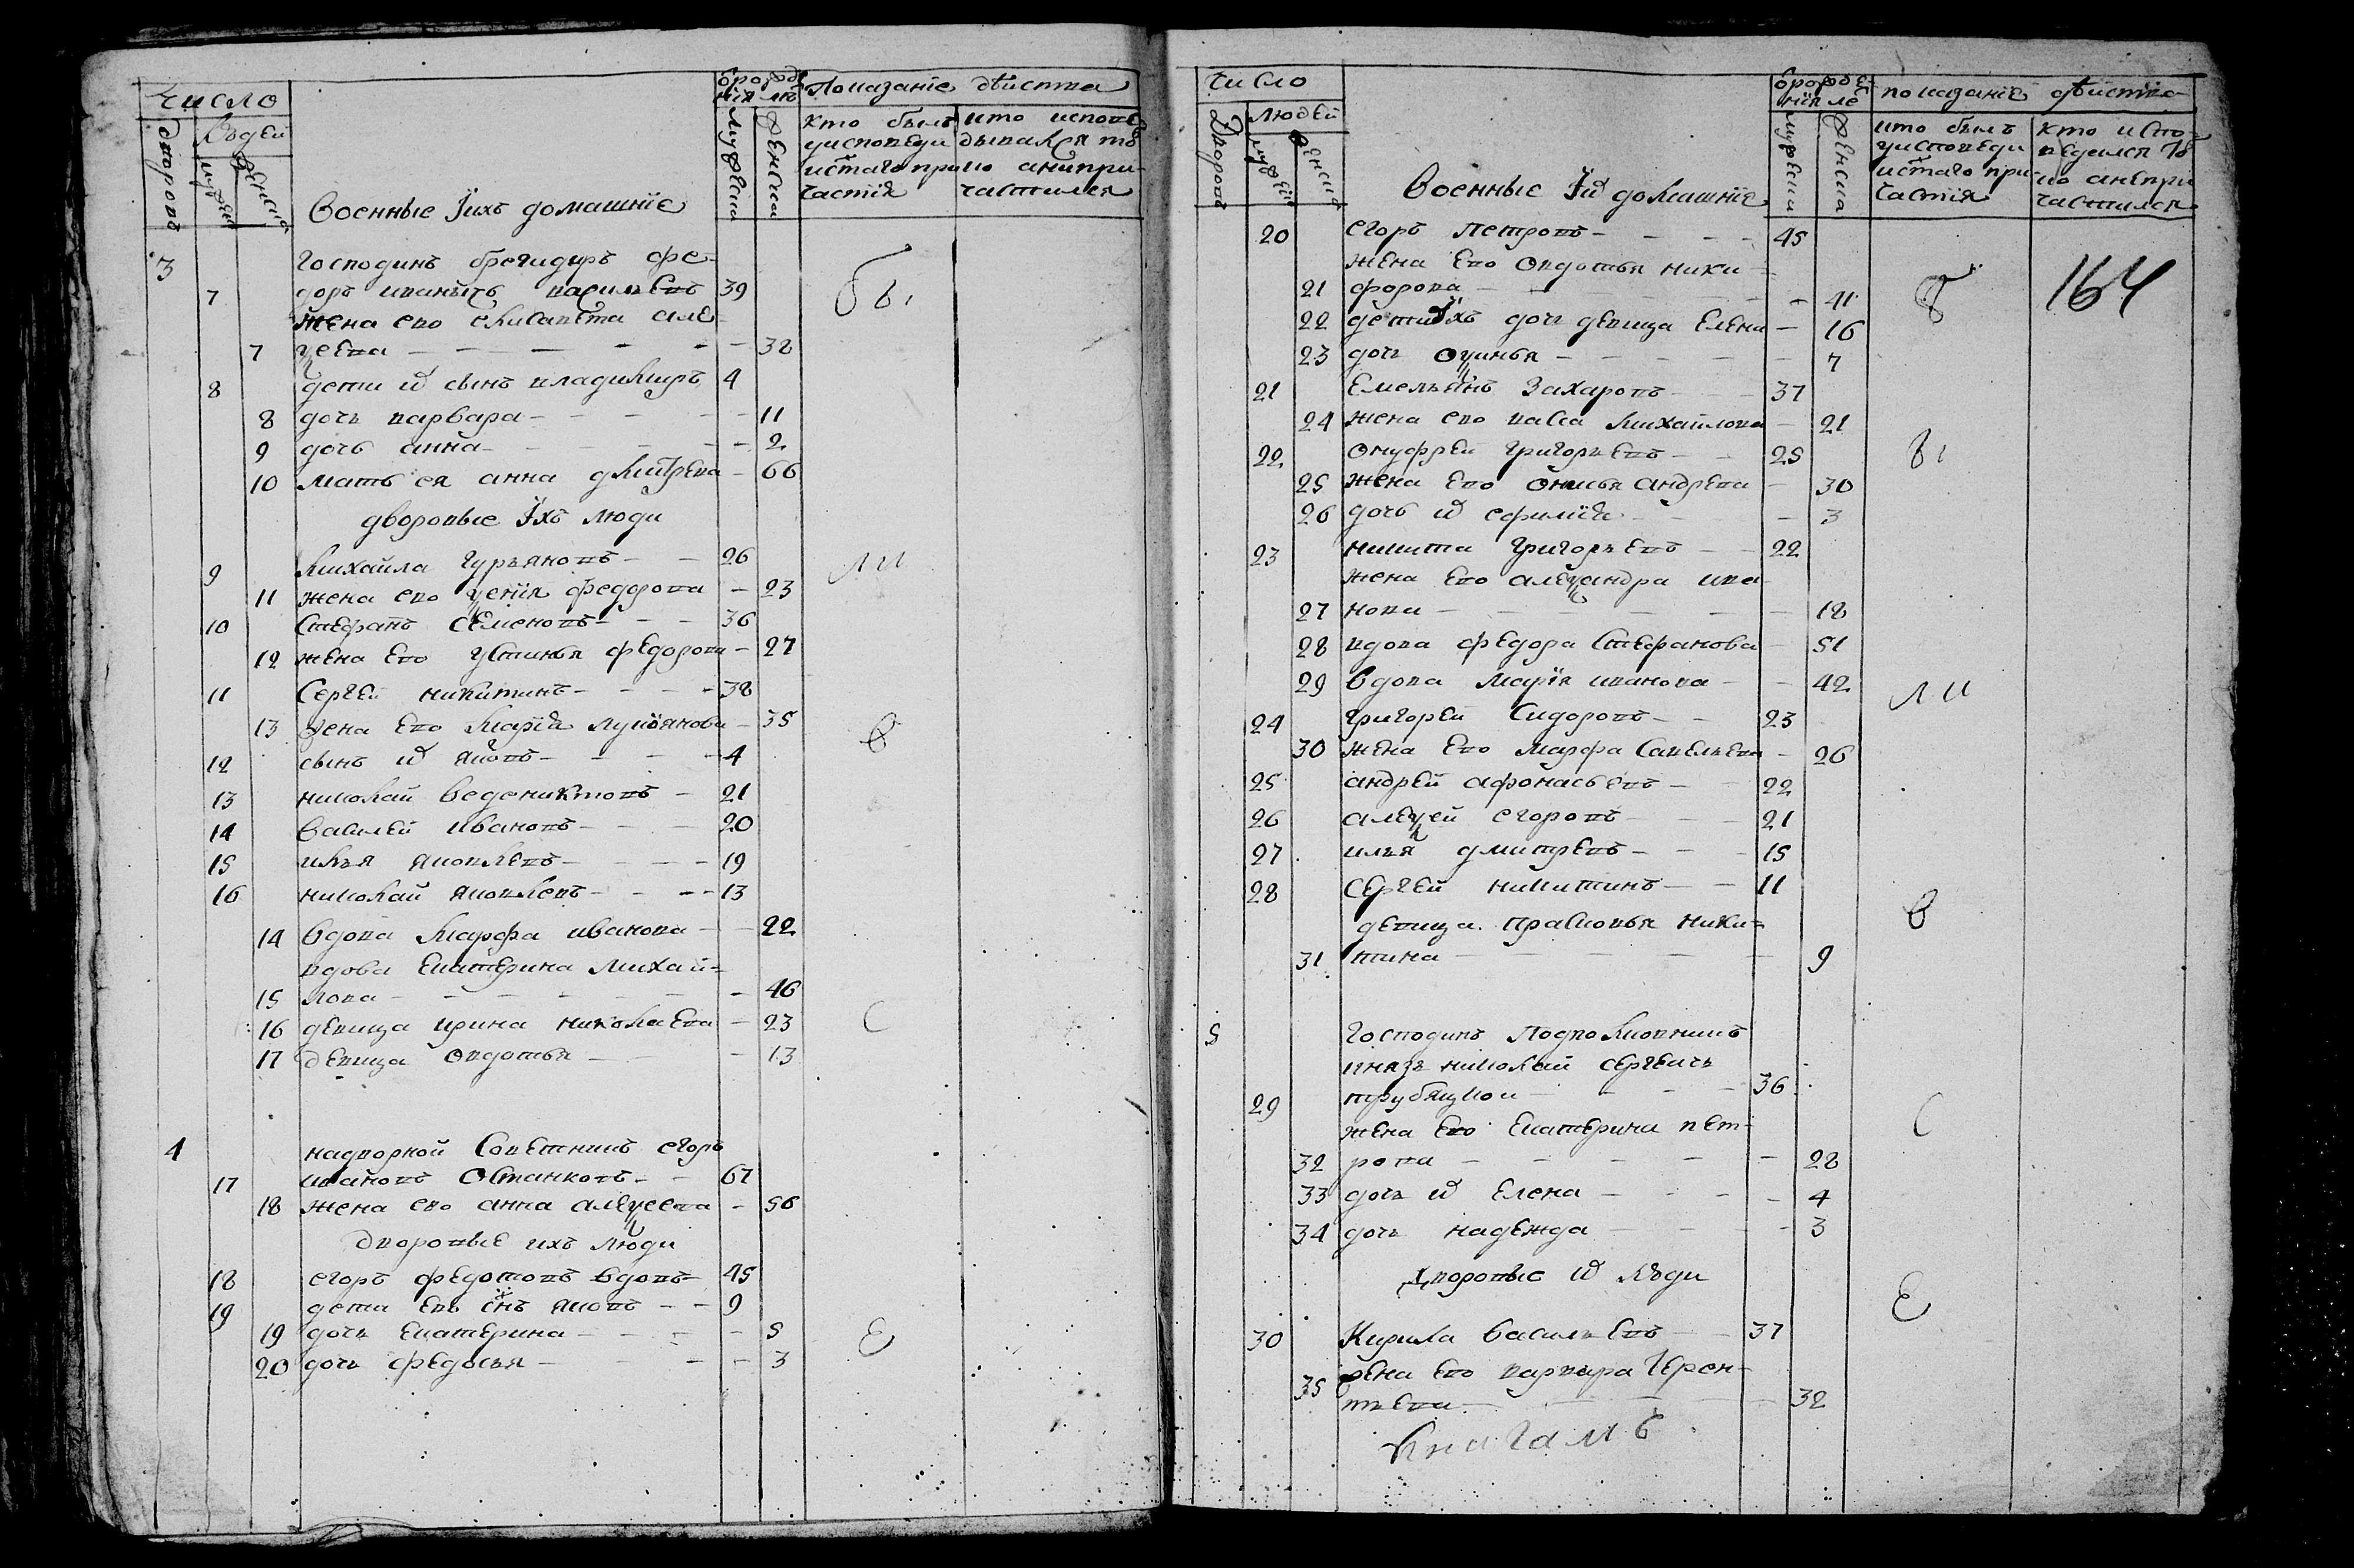 Число
Дворовъ
Людей
мужеи
женска
Военные Ихъ домашніе
от рожде
нія лѣ
мужеска
женска
Показаніе дѣиства
кто былъ
уисповеди
истаго при
частія
кто испове
дывался то
ко анипри-
частился
3
Господинъ брегидиръ фе-
7 доръ иванычъ васильевъ 39
жена ево елисавета але-
7 ѯевна - - - - 32
8 дети их сынъ владимиръ 4
8 дочь варвара - - - 11
9 дочь анна - - - 2
10 мать ея анна дмитрева - 66
дворовые Ихъ люди
9 михайла гурьяновъ - - 26
11 жена ево ѯенія федорова - 23
10 Стефанъ Семеновъ - - 36
12 жена Ево устинья федорова - 27
11 Сергеи никитинъ - - - 38
13 жена Ево марія лукоянова - 35
12 сынъ их яковъ - - - 4
13 николаи веденихтовъ - 21
14 василеи ивановъ - - - 20
15 илья яковлевъ - - - 19
16 николаи яковлевъ - - - 13
14 вдова марфа иванова - - 22
вдова Екатерина михаи=
15 лова - - - - - 46
16 девица ирина николаева - 23
17 девица овдотья - - 13
4
надворнои Советникъ егоръ
17 ивановъ Останковъ - - 67
18 жена ево анна алеѯеева - 56
дворовые ихъ люди
18 егоръ федотовъ вдовъ 45
19 дети Ево снъ яковъ - - 9
19 дочь екатерина - - - 5
20 дочь федосья - - - 3
бы
ли
в
с
Е
Число
Дворовъ
людей
мужеи
женска
Военные Их домашніе
от рожде-
нія ле
мужески
женска
показаніе дѣиства
кто былъ
уисповеди
истаго при
частія
кто испо-
ведился то
ко анепри
частился
20 егоръ петровъ - - - - 45
жена Ево овдотья ники=
21 форова - - - 41
22 дети Ихъ доч девица Елена - 16
23 дочь оѯинья - - - - 7
21 Емельянъ Захаровъ - - 37
24 жена ево васса михаилова - 21
22 онуфреи григорьевъ - - 25
25 жена Ево андрева - 30
26 дочь их - - 3
23 никита григорьевъ - - 22
жена Ево алеѯандра ива-
27 нова - - - - - 18
28 вдова федора Стефанова - 51
29 вдова марія иванова - - 42
24 григореи Сидоровъ - - 23
30 жена Ево марфа Савельева - 26
25 андреи афонасьевъ - - 22
26 алеѯеи егоровъ - - - 21
27 илья дмитревъ - - - 15
28 Сергеи никитинъ - - 11
девица прасковья ники=
31 тина - - - - - 9
5
Господинъ Подполковникъ
князь николаи сергеичь
29 трубяцкои - - - 36
жена Ево Екатерина пет-
32 рова - - - - - 28
33 дочь их Елена - - - 4
34 дочь надежда - - - 3
дворовые их люди
30 Кирила васильевъ - 37
жена Ево варвара Терен-
35 тьева - - - 32
б
ы
ли
в
с
Е
164